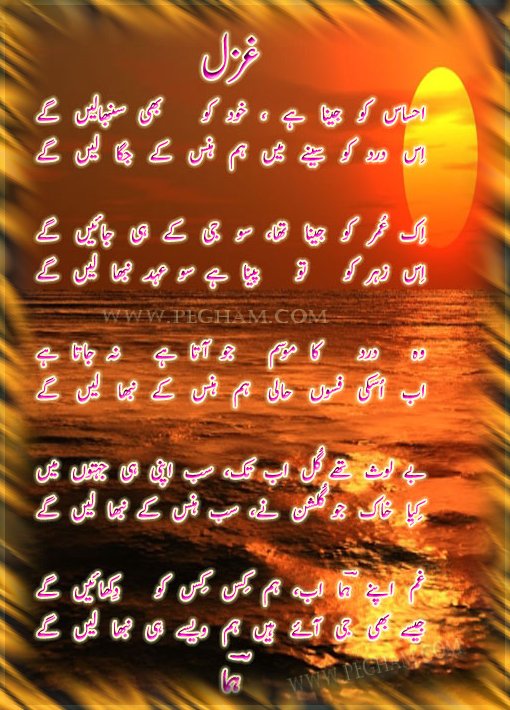 غزل
احساس کو جینا ہے ، خود کو بھی سنبھالیں گے
اِس درد کو سینے میں ہم ہنس کے جگا لیں گے
اِک عُمر کو جینا تھا، سو جی کے ہی جائیں گے
اِس زہر کو تو پینا ہے سو عہد نبھا لیں گے
WWW.PEGHAM.COM
وہ درد کا موسم جو آتا ہے نہ جاتا ہے
اب اُسکی فسوں حالی ہم ہنس کے نبھا لیں گے
بے لوث تھے گُل اب تک، سب اپنی ہی جہتوں میں
کِیا خاک جو گُلشن نے، سب ہنس کے نبھا لیں گے
غم اپنے ہما اب، ہم کِس کِس کو دِکھائیں گے
جیسے بھی جی آئے ہیں ہم ویسے ہی نبھا لیں گے
ہما
WWW.PEGHAM.COM